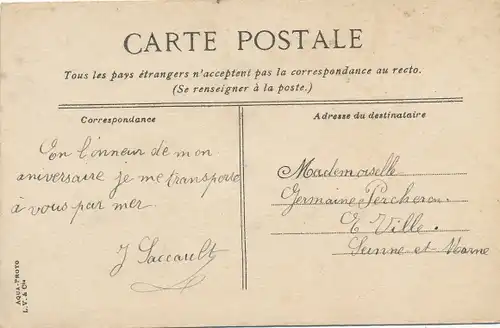 CARTE POSTALE
Tous les pays étrangers n'acceptent pas la correspondance au recto.
(Se renseigner à la poste.)
Correspondance
En l'onneur de mon
aniversaire je me transporte
à vous par mer.
J Saccault
Adresse du destinataire
Mademoiselle
Germaine Percheron.
E Ville.
Seinne-et-Marne
AQUA-PHOTO
L. V. & Cie